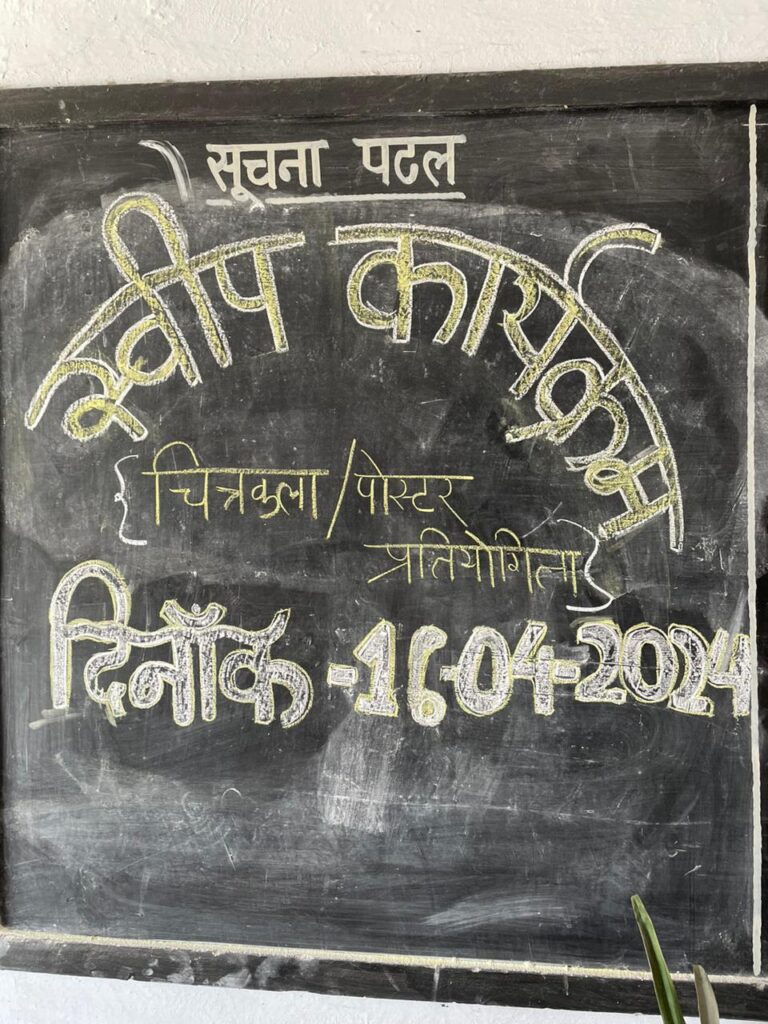 सूचना पटल
स्वीप कार्यक्रम
{चित्रकला/पोस्टर
प्रतियोगिता}
दिनाँक -16-04-2024